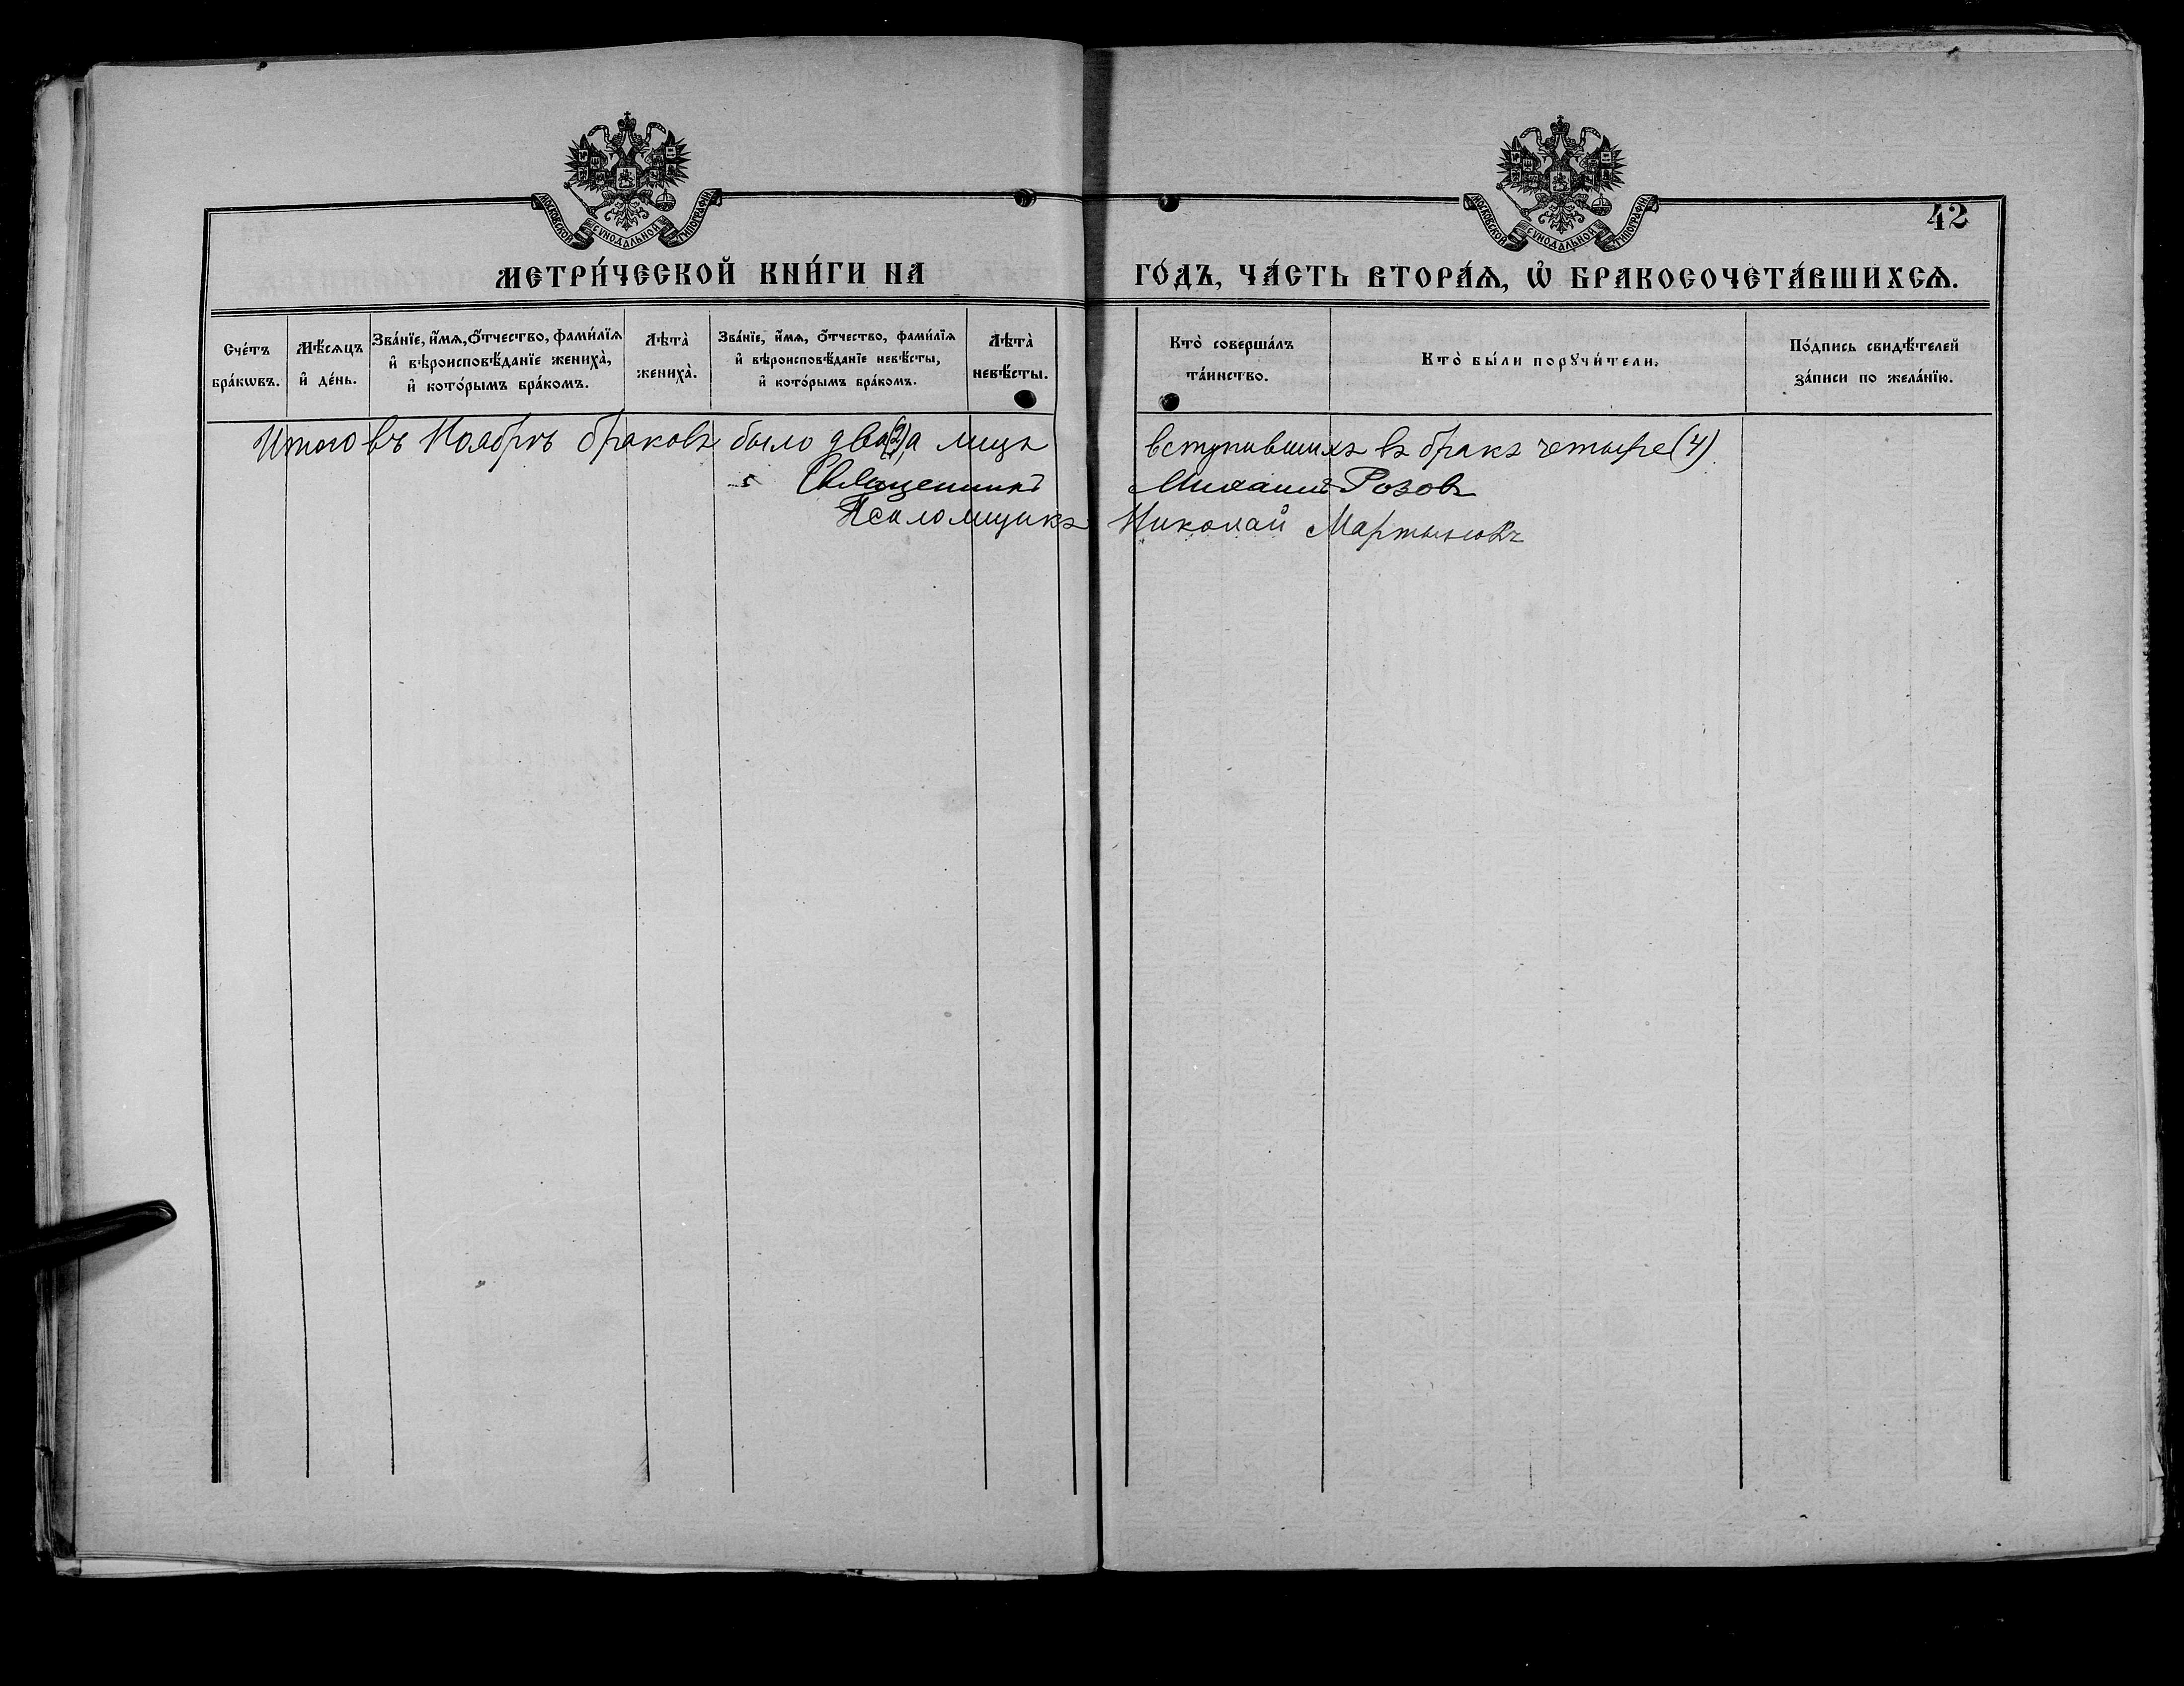 МОСКОВСКОЙ СѴНОДАЛЬНОЙ ТИПОГРАФІИ
МОСКОВСКОЙ СѴНОДАЛЬНОЙ ТИПОГРАФІИ
42
МЕТРИ́ЧЕСКОЙ КНИ́ГИ НА ГО́ДЪ, ЧА́СТЬ ВТОРА́Ѧ, Ѽ БРАКОСОЧЕТА́ВШИХСѦ.
Сче́тъ
бра́кѡвъ.
Мѣ́сѧцъ
и҆ де́нь.
Зва́нїе, и҆́мѧ, ѻ҆́тчество, фами́лїѧ
и҆ вѣроисповѣ́данїе жениха̀,
и҆ кото́рымъ бра́комъ.
Лѣта̀
жениха̀.
Зва́нїе, и҆́мѧ, ѻ҆́тчество, фами́лїѧ
и҆ вѣроисповѣ́данїе невѣ́сты,
и҆ кото́рымъ бра́комъ.
Лѣта̀
невѣ́сты.
Кто̀ соверша́лъ
та́инство.
Кто̀ бы́ли порꙋчи́тели.
По́дпись свидѣ́телей
за́писи по жела́нїю.
Итого въ Ноябрѣ браковъ было два (2), а лицъ вступившихъ въ бракъ четыре (4).
Священникъ Михаилъ Розовъ
Псаломщикъ Николай Мартыновъ